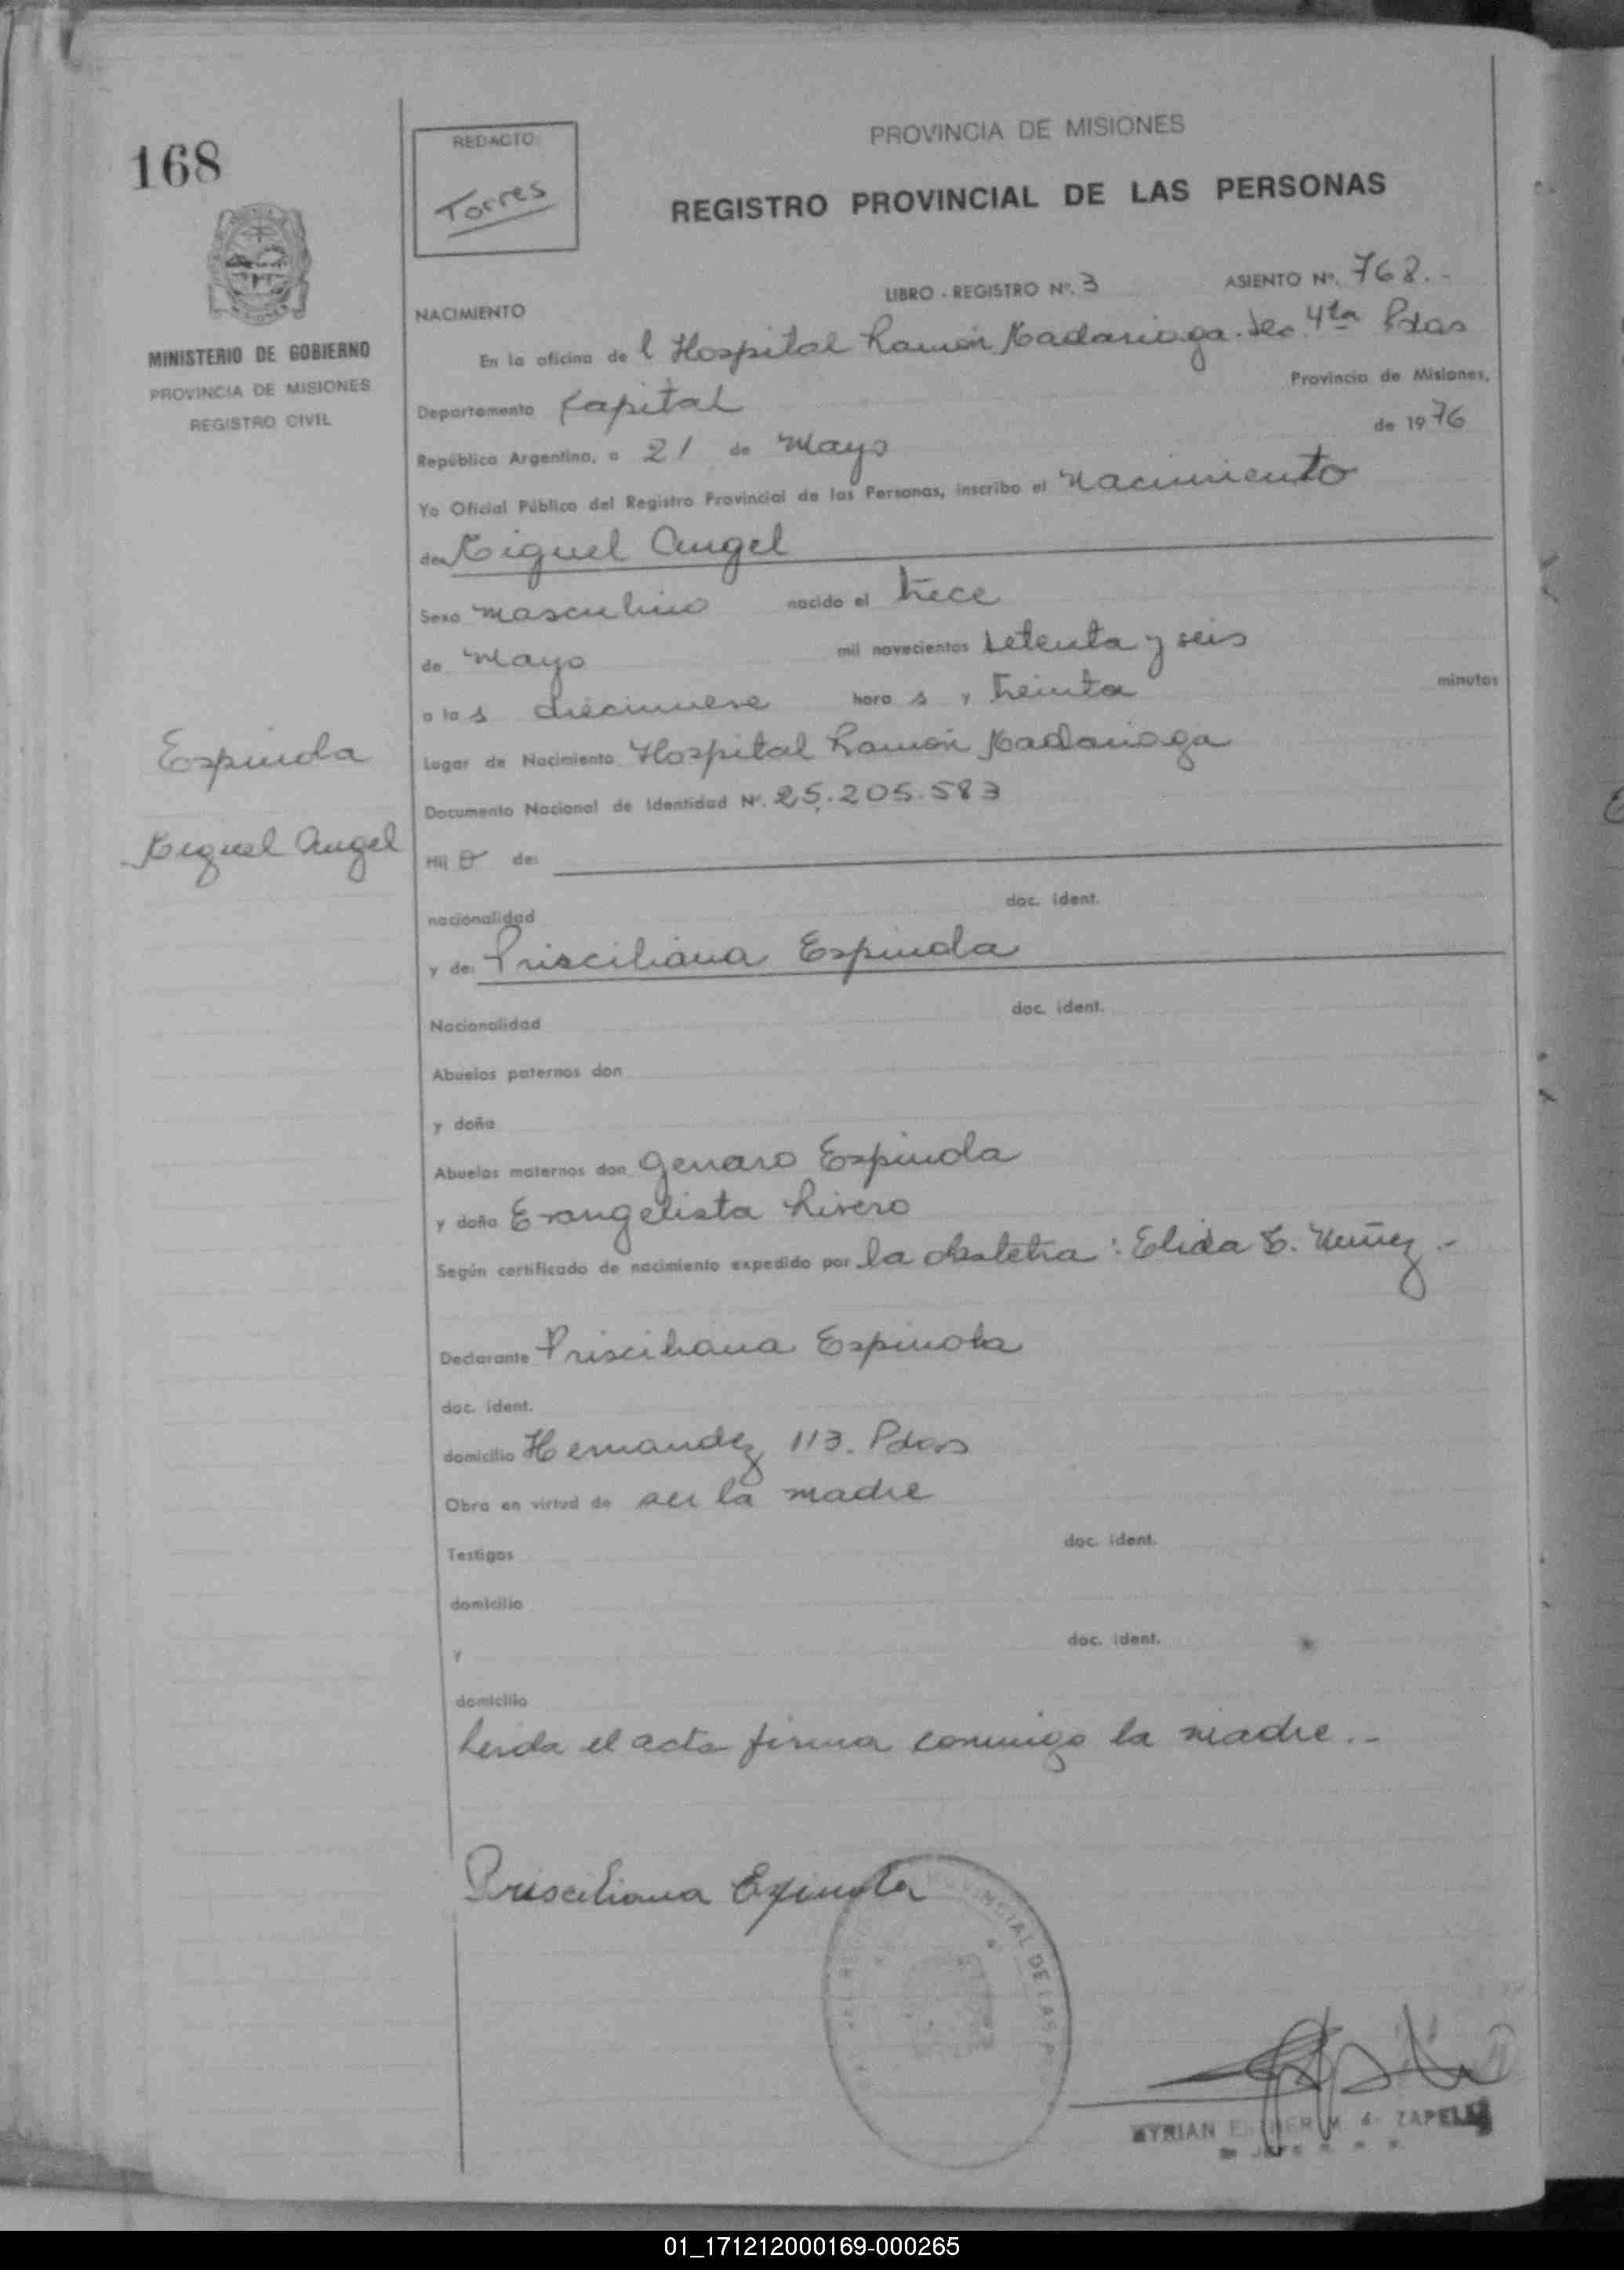 168
REDACTO:
Torres
PROVINCIA DE MISIONES
REGISTRO PROVINCIAL DE LAS PERSONAS
MINISTERIO DE GOBIERNO
PROVINCIA DE MISIONES
REGISTRO CIVIL
LIBRO - REGISTRO Nº. 3 ASIENTO Nº. 768.-
NACIMIENTO
En la oficina de l Hospital Ramón Madariaga. Sec. 4ta Pdas
Departamento Capital Provincia de Misiones,
República Argentina, a 21 de Mayo de 1976
Yo Oficial Público del Registro Provincial de las Personas, inscribo el Nacimiento
de Miguel Angel
Sexo masculino nacido el trece
de Mayo mil novecientos setenta y seis
a la s diecinueve hora s y treinta minutos
Lugar de Nacimiento Hospital Ramón Madariaga
Documento Nacional de Identidad Nº. 25.205.583
Espinola
Miguel Angel
Hij o de:
nacionalidad doc. ident.
y de: Prisciliana Espinola
Nacionalidad doc. ident.
Abuelos paternos don
y doña
Abuelos maternos don Genaro Espinola
y doña Evangelista Rivero
Según certificado de nacimiento expedido por la obstetra : Elida E. Nuñez .-
Declarante Prisciliana Espinola
doc. ident.
domicilio Hernandez 113. Pdas
Obra en virtud de ser la madre
Testigos doc. ident.
domicilio
y doc. ident.
domicilio
Leida el acta firma conmigo la madre .-
Prisciliana Espinola
NCIAL DE LAS P
MYRIAN ESTHER M. de ZAPELLI
01_171212000169-000265